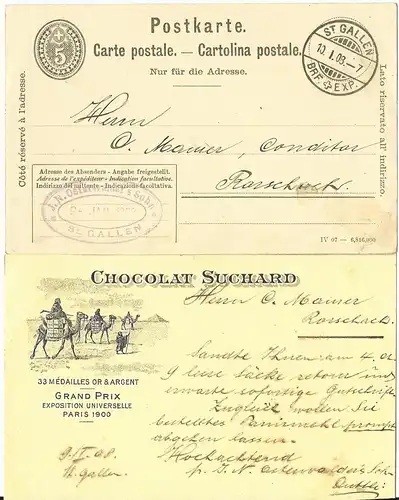 Postkarte.
Carte postale. — Cartolina postale.
Nur für die Adresse.
5
ST. GALLEN
10.I.08.-7
BRF. EXP.
Côté réservé à l'adresse.
Lato riservato all' indirizzo.
Herrn
O. Mauser, Conditor
Rorschach
Adresse des Absenders - Angabe freigestellt.
Adresse de l'expéditeur - Indication facultative.
Indirizzo del mittente - Indicazione facoltativa.
J.N. Sohn
ST. GALLEN
IV 07 — 6,816,000
CHOCOLAT SUCHARD
Herrn O. Mauser
Rorschach.
Sandte Ihnen am 4. ct.
9 leere Säcke retour und
erwarte sofortige Gutschrift.
Zugleich wollen Sie
bestelltes Paniermehl prompt
abgehen lassen.
Hochachtend
p. J. N. Sohn
33 MÉDAILLES OR & ARGENT
GRAND PRIX
EXPOSITION UNIVERSELLE
PARIS 1900
08
St. Gallen.